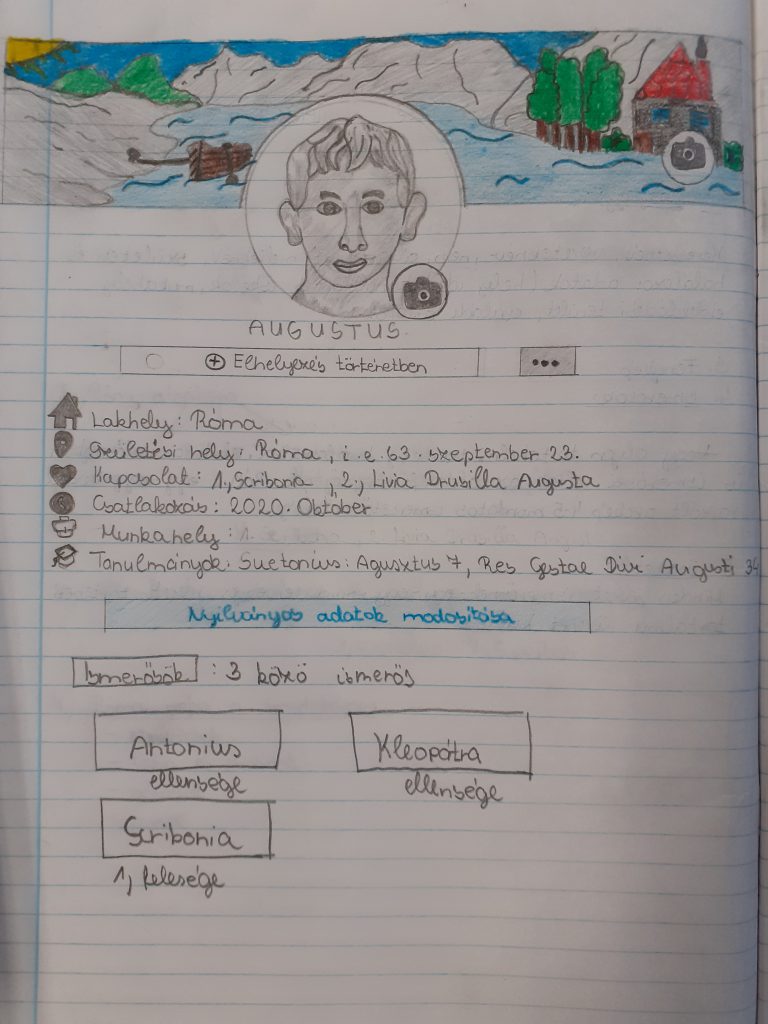 AUGUSTUS
Elhelyezés történetben
Lakhely: Róma
Születési hely: Róma, i.e. 63. szeptember 23.
Kapcsolat: 1., Scribonia, 2., Livia Drusilla Augusta
Csatlakozás: 2020. Október
Munkahely:
Tanulmányok: Suetonius: Agusztus 7, Res Gestae Divi Augusti 34
Nyilvános adatok modosítása
Ismerősök: 3 közö ismerős
Antonius Kleopátra
ellensége ellensége
Scribonia
1, felesége